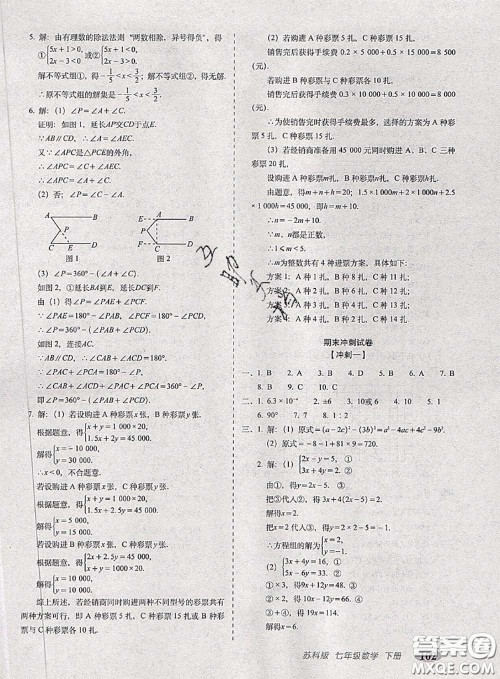 5. 解：由有理数的除法法则“两数相除，异号得负”，得
①{5x+1>0, 2x-3<0 或②{5x+1<0, 2x-3>0.
解不等式组①，得-1/5<x<3/2；解不等式组②，无解.
∴原不等式组的解集是-1/5<x<3/2.
6. 解：(1) ∠P=∠A+∠C.
证明：如图1，延长AP交CD于点E.
∵AB∥CD，∴∠A=∠AEC.
又∵∠APC是△PCE的外角，
∴∠APC=∠C+∠AEC.
∴∠APC=∠A+∠C.
(2) 否；∠P+∠A+∠C=360°.
A B P C E D
图1
E A B P F C D
图2
(3) ∠P=360°-(∠A+∠C).
如图2，①延长BA到E，延长DC到F.
由(1)，得∠P=∠PAE+∠PCF.
∵∠PAE=180°-∠PAB，∠PCF=180°-∠PCD，
∴∠P=360°-(∠PAB+∠PCD).
如图2，连接AC.
∵AB∥CD，∴∠CAB+∠ACD=180°.
∵∠PAC+∠PCA=180°-∠P，
∴∠CAB+∠ACD+∠PAC+∠PCA=360°-∠P，
即∠P=360°-(∠PAB+∠PCD).
7. 解：(1) 若设购进A种彩票x张，B种彩票y张.
根据题意，得{x+y=1 000×20, 1.5x+2y=45 000.
解得{x=-10 000, y=30 000.
∴x<0，不合题意.
若设购进A种彩票x张，C种彩票y张.
根据题意，得{x+y=1 000×20, 1.5x+2.5y=45 000.
解得{x=5 000, y=15 000.
若设购进B种彩票x张，C种彩票y张.
根据题意，得{x+y=1 000×20, 2x+2.5y=45 000.
解得{x=10 000, y=10 000.
综上所述，若经销商同时购进两种不同型号的彩票共有两种方案可行，即A种彩票5扎，C种彩票15扎或B种彩票与C种彩票各10扎.
(2) 若购进A种彩票5扎，C种彩票15扎.
销售完后获得手续费0.2×5 000+0.5×15 000=8 500(元).
若购进B种彩票与C种彩票各10扎.
销售完后获得手续费0.3×10 000+0.5×10 000=8 000(元).
∴为使销售完时获得手续费最多，选择的方案为A种彩票5扎，C种彩票15扎.
(3) 若经销商准备用45 000元同时购进A、B、C三种彩票20扎.
设购进A种彩票m扎，B种彩票n扎，C种彩票h扎.
由题意，得m+n+h=20；1.5×1 000m+2×1 000n+2.5×1 000h=45 000，即h=m+10.
∴n=-2m+10.
∵m、n都是正数，
∴1≤m<5.
∴m为整数共有4种进票方案，具体如下：
方案1：A种1扎，B种8扎，C种11扎；
方案2：A种2扎，B种6扎，C种12扎；
方案3：A种3扎，B种4扎，C种13扎；
方案4：A种4扎，B种2扎，C种14扎.
期末冲刺试卷
【冲刺一】
一、1. B 2. A 3. D 4. B 5. C 6. D 7. A 8. D
二、1. 6.3×10⁻⁴ 2. ±6 3. ±10或6 4. 10 5. 12
6. 90° 7. 7 8. 1，2，3
三、1. 解：(1) 原式=(a-2c)²-(3b)²=a²-4ac+4c²-9b².
(2) 原式=-8-81+9=-80.
2. 解：(1) {2x-y=5, ① 3x+4y=2. ②
由①，得y=2x-5.③
把③代入②，得3x+4(2x-5)=2.
解得x=2.
把x=2代入③，得y=-1.
∴方程组的解为{x=2, y=-1.
苏科版 七年级数学 下册
102
答案圈